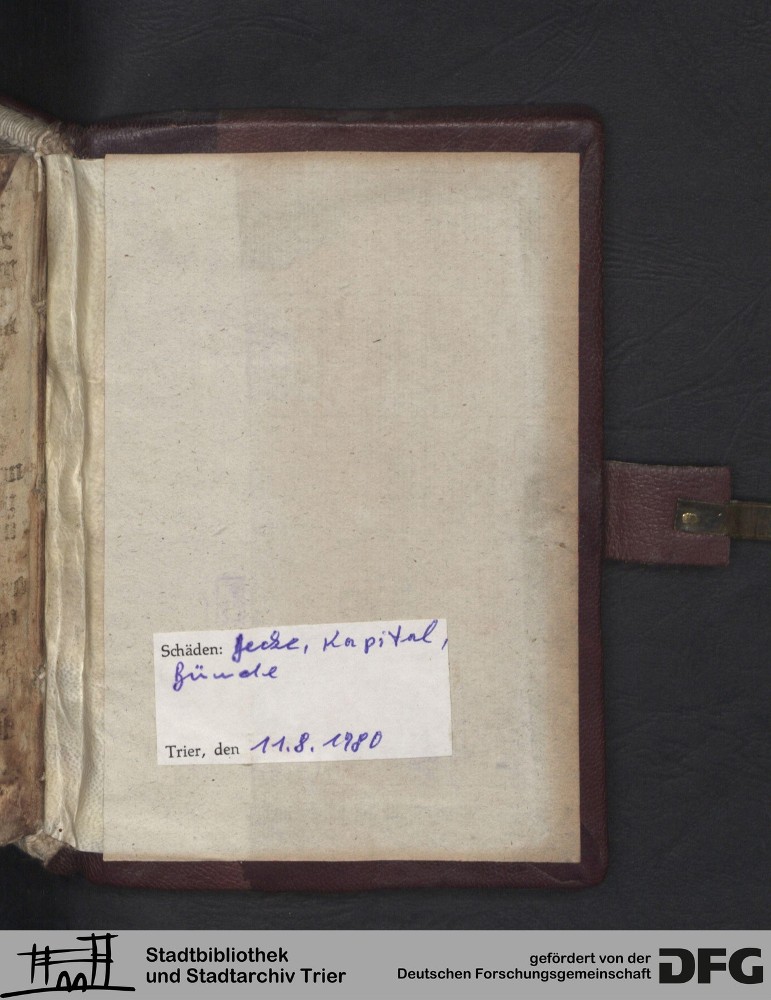 Schäden: Decke, Kapital,
Bünde
Trier, den 11.8.1980
Stadtbibliothek
und Stadtarchiv Trier
gefördert von der
Deutschen Forschungsgemeinschaft
DFG